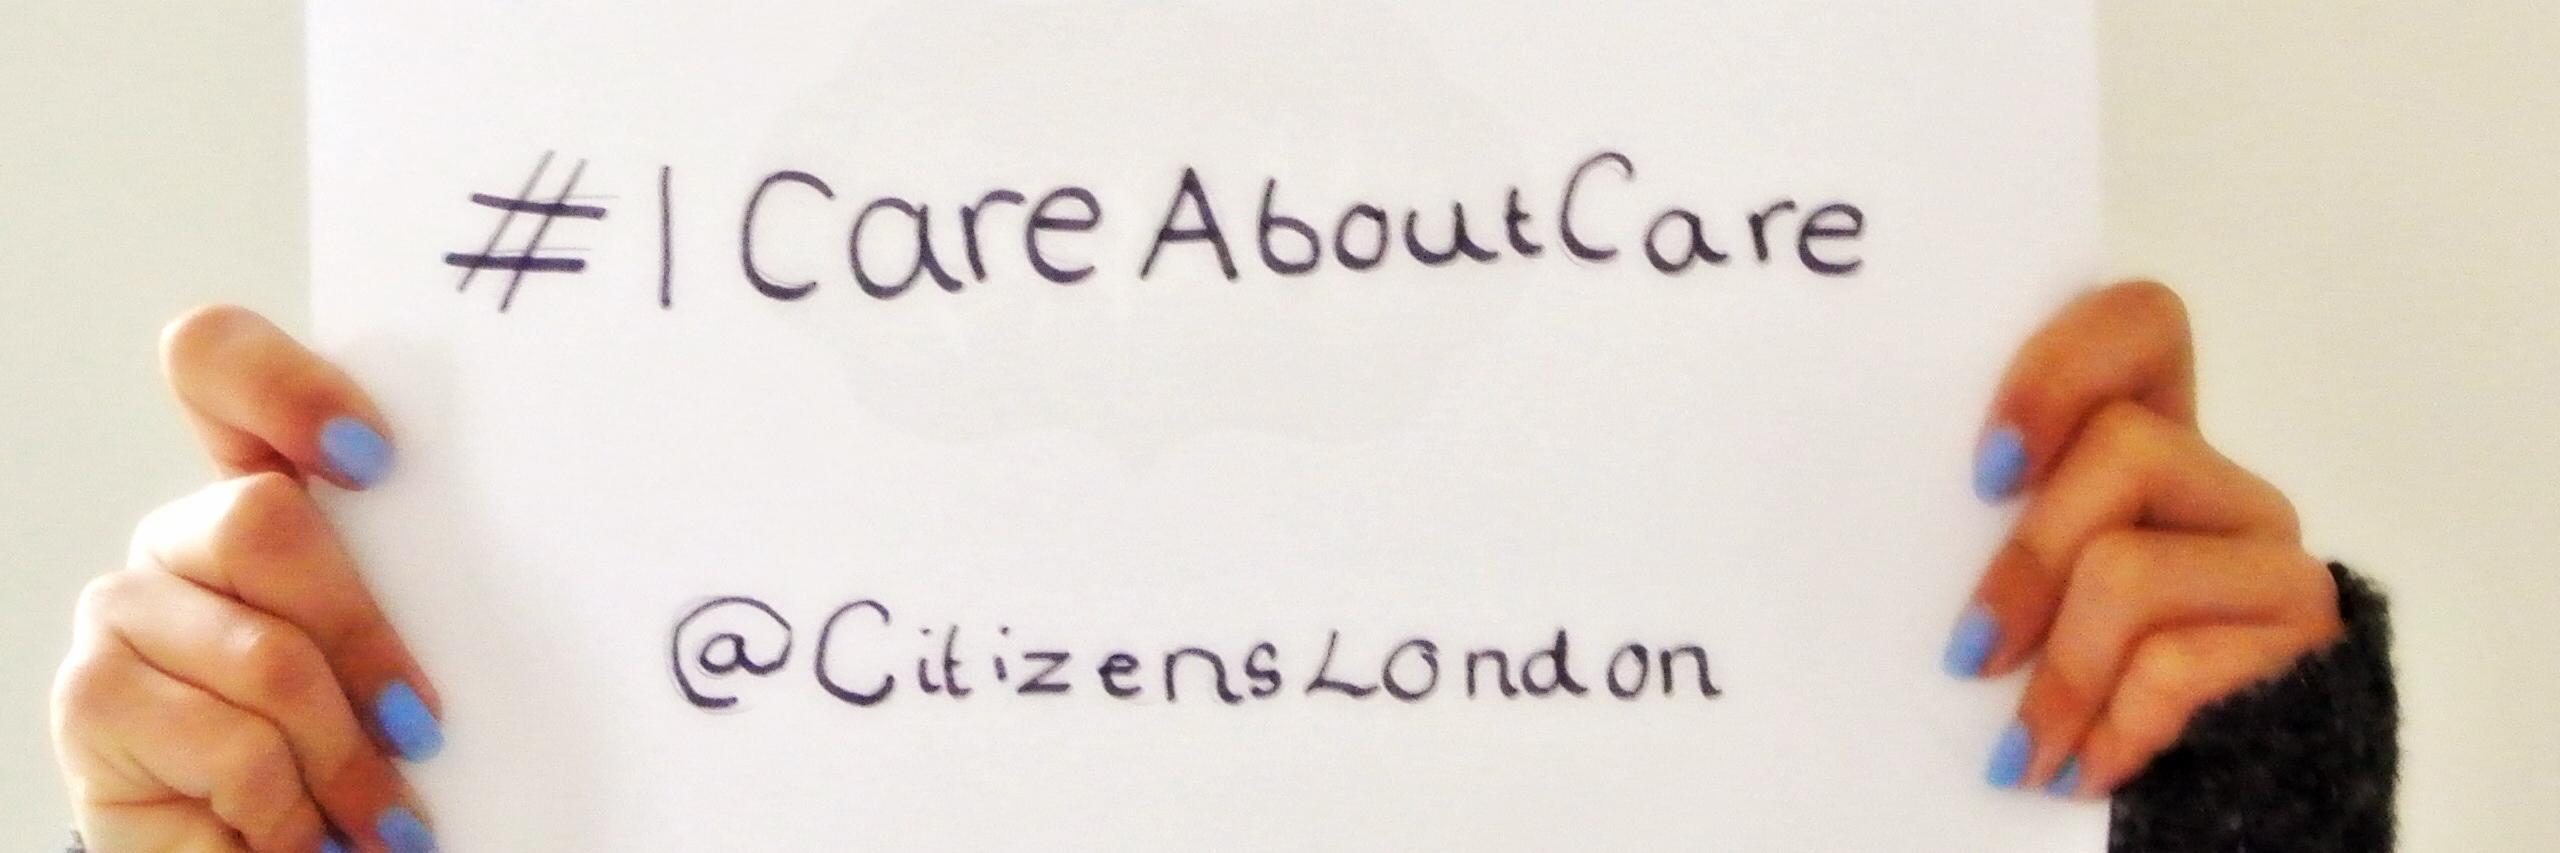 #ICareAboutCare
@CitizensLondon